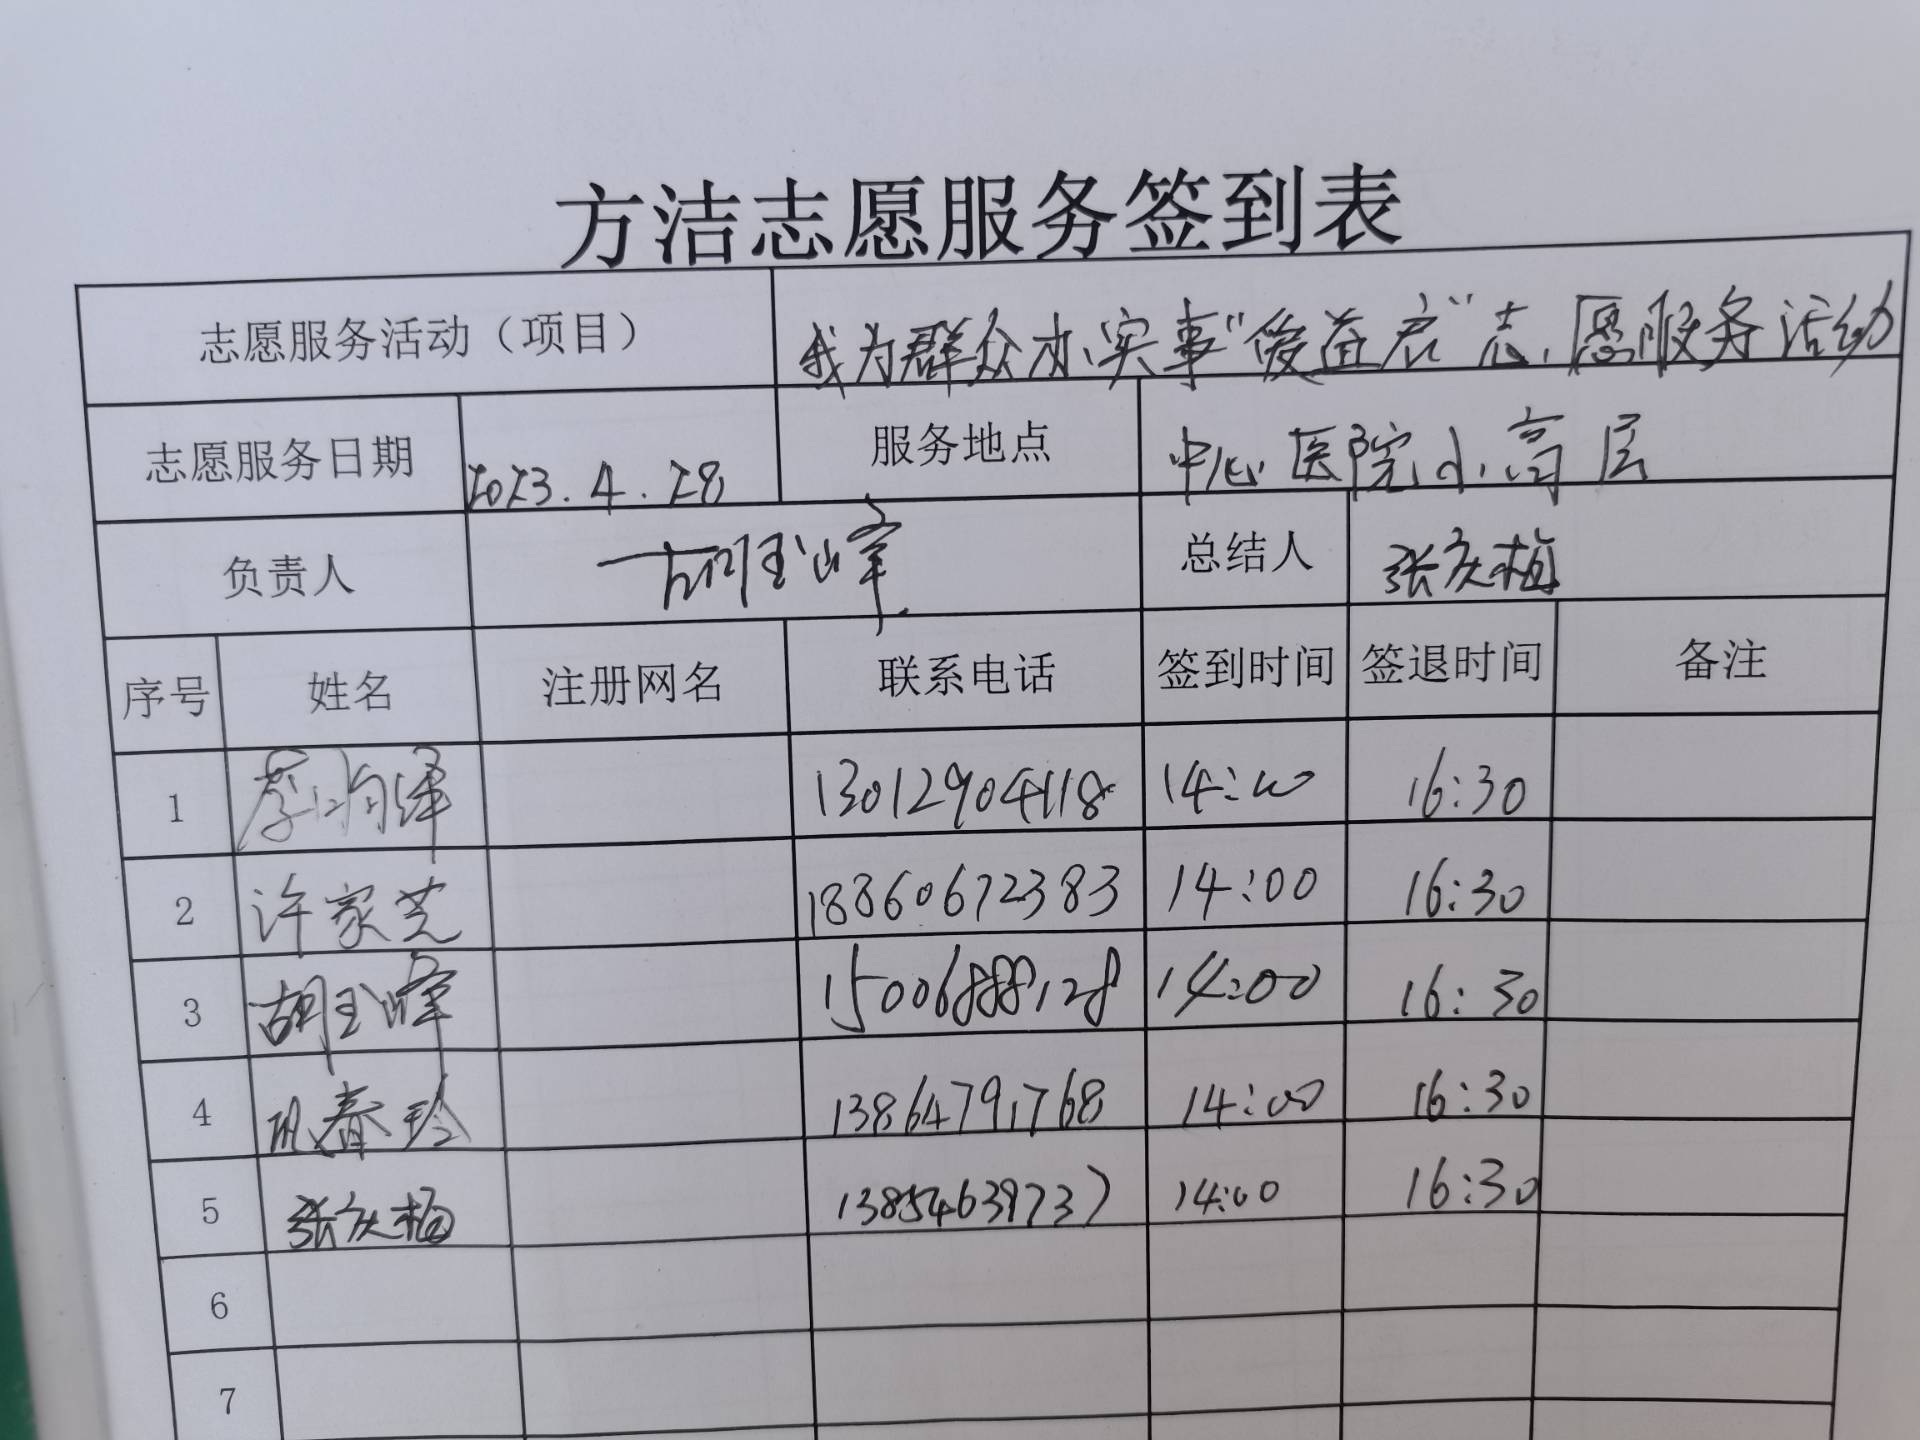 方洁志愿服务签到表
志愿服务活动（项目） 我为群众办实事"俊益启"志愿服务活动
志愿服务日期 2023.4.28 服务地点 中心医院小高层
负责人 胡玉峰 总结人 张庆梅
序号 姓名 注册网名 联系电话 签到时间 签退时间 备注
1 李昀泽 13012904118 14:00 16:30
2 许家芝 18860672383 14:00 16:30
3 胡玉峰 15006888128 14:00 16:30
4 巩春玲 13864791768 14:00 16:30
5 张庆梅 13854639737 14:00 16:30
6
7